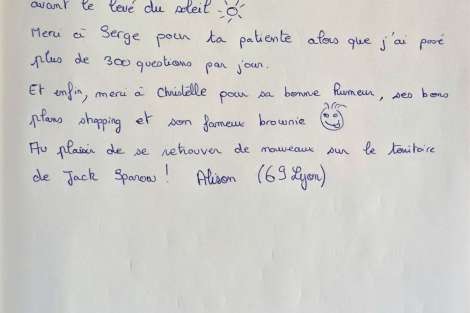 avant le levé du soleil
Merci à Serge pour ta patiente alors que j'ai posé
plus de 300 questions par jour.
Et enfin, merci à Christelle pour sa bonne humeur, ses bons
plans shopping et son fameux brownie
Au plaisir de se retrouver de nouveaux sur le territoire
de Jack Sparow! Alison (69 Lyon)